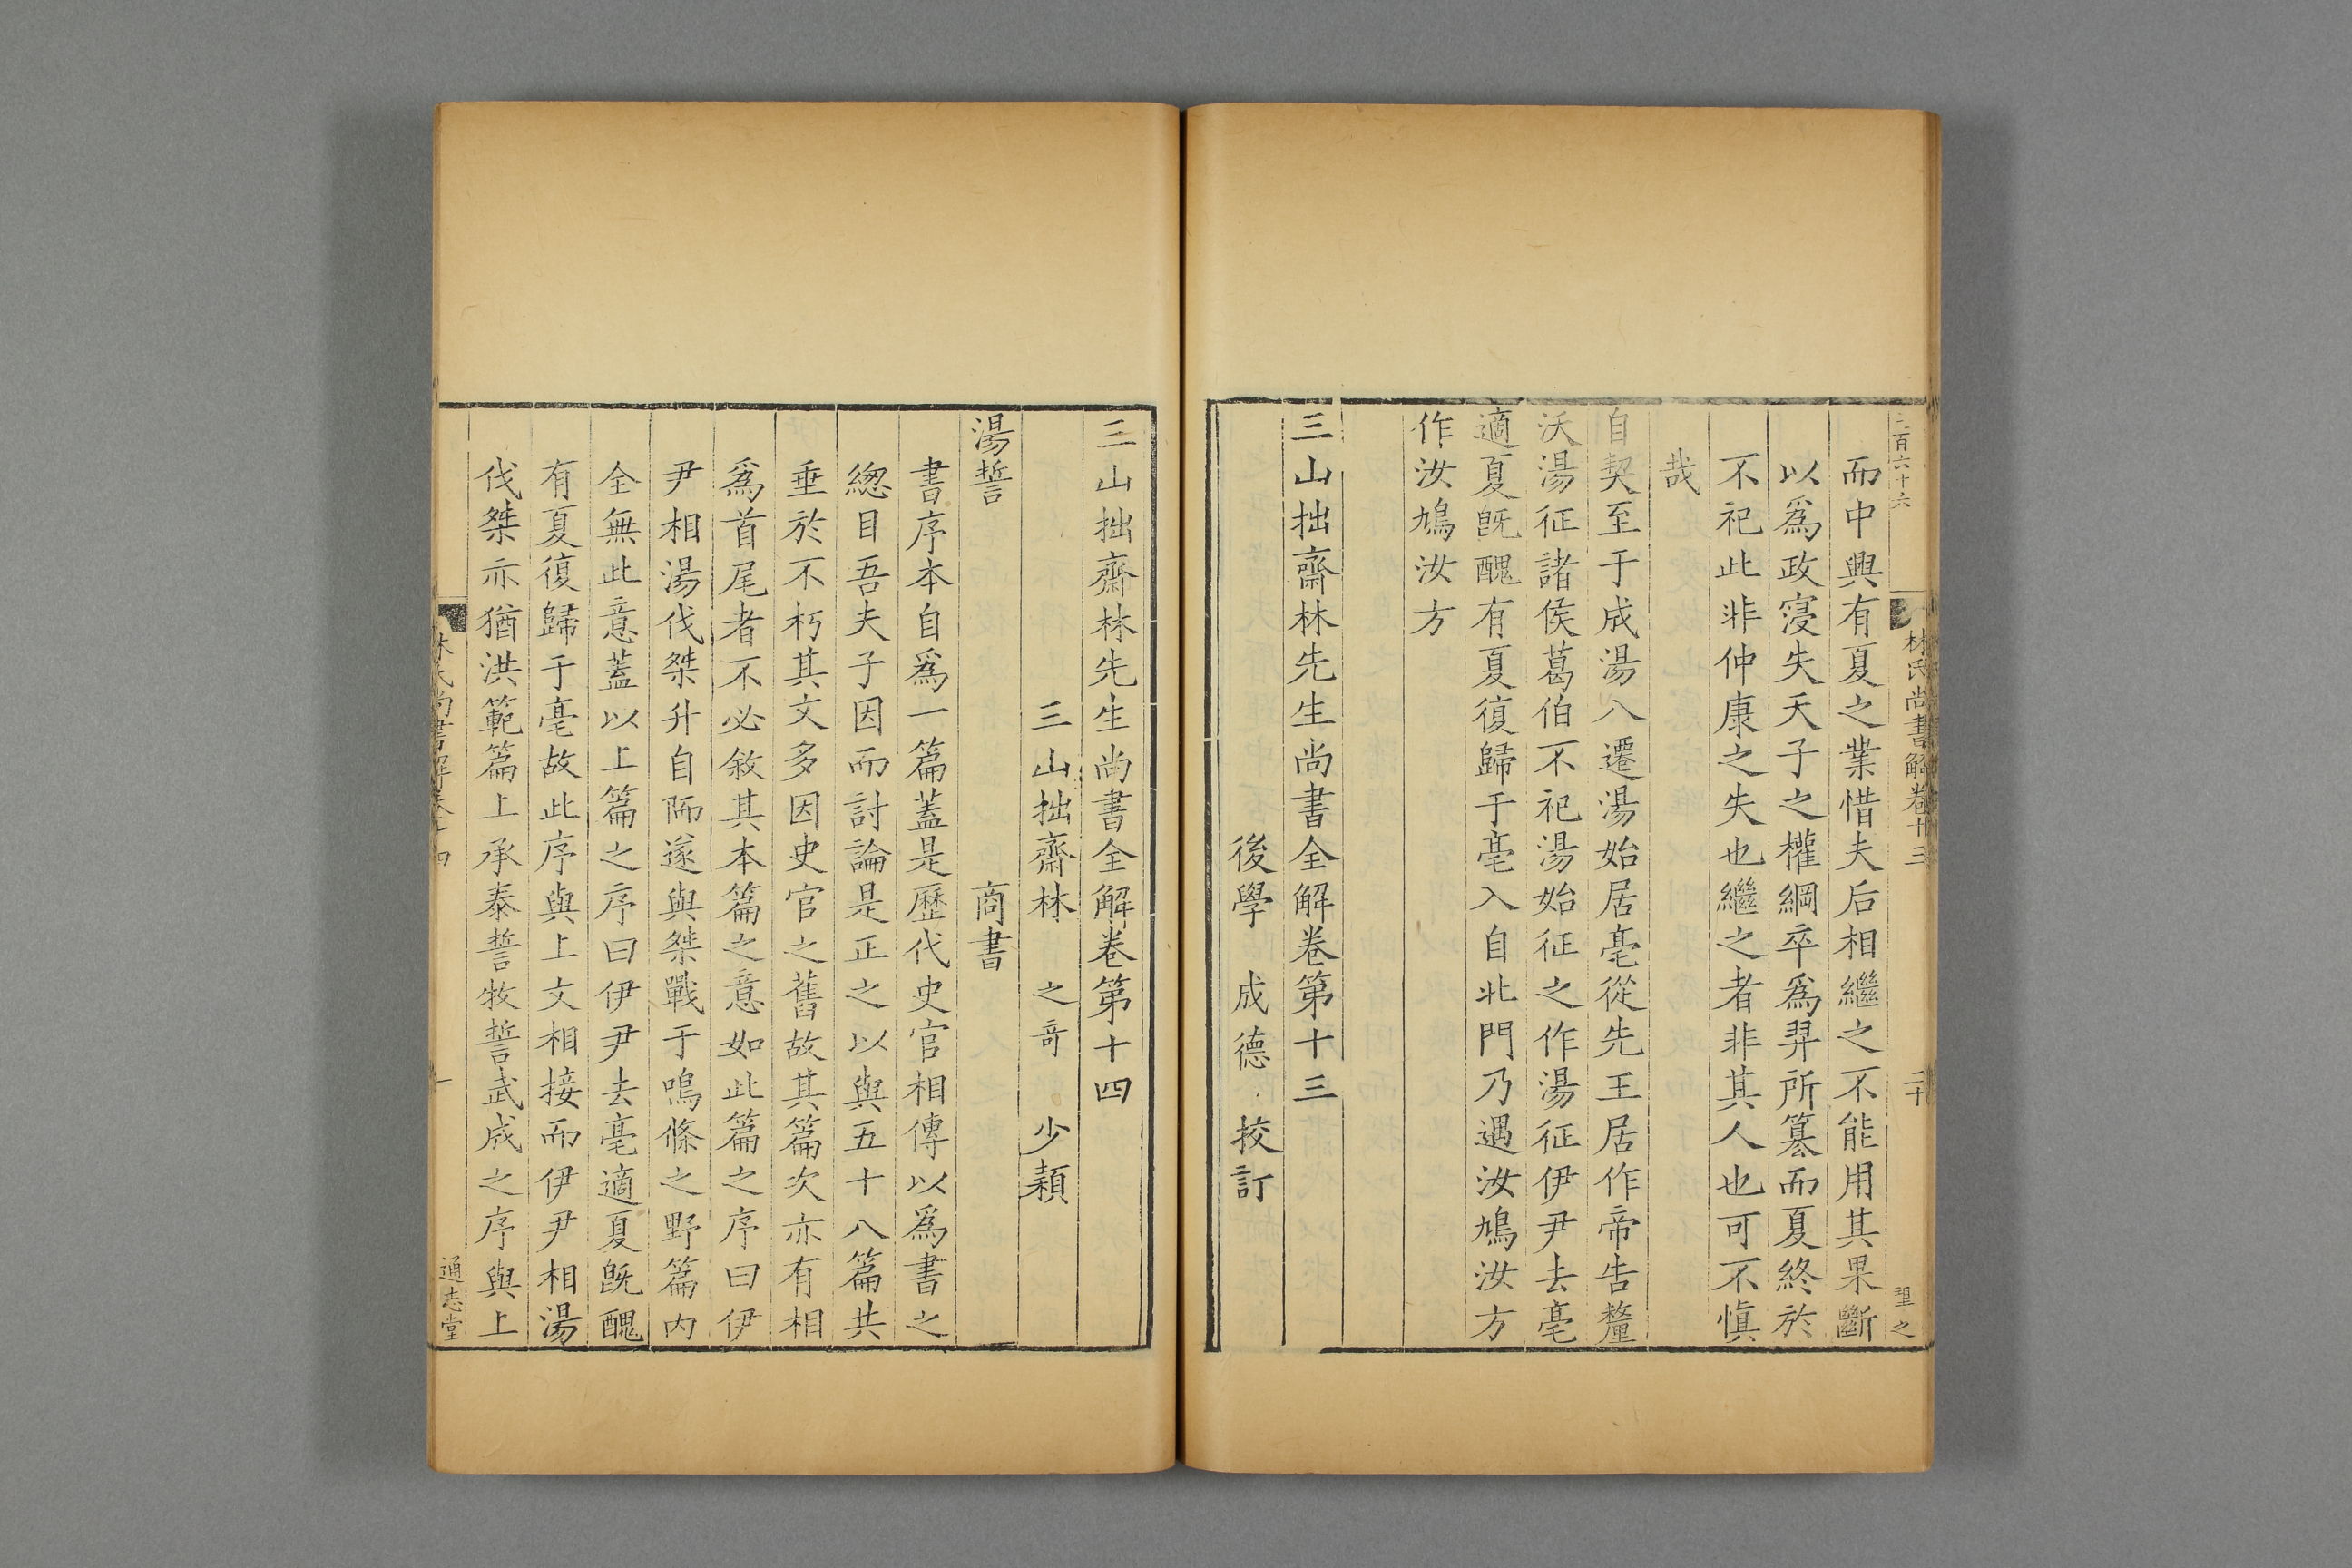 三百六十六 林氏尚書解卷十三 二十 望之
而中興有夏之業惜夫后相繼之不能用其果斷
以爲政寖失天子之權綱卒爲羿所簒而夏終於
不祀此非仲康之失也繼之者非其人也可不愼
哉
自契至于成湯八遷湯始居亳從先王居作帝告釐
沃湯征諸侯葛伯不祀湯始征之作湯征伊尹去亳
適夏旣醜有夏復歸于亳入自北門乃遇汝鳩汝方
作汝鳩汝方
三山拙齋林先生尚書全解卷第十三
後學 成德 挍訂
三山拙齋林先生尚書全解卷第十四
三山拙齋林 之奇 少穎
湯誓 商書
書序本自爲一篇蓋是歷代史官相傳以爲書之
緫目吾夫子因而討論是正之以與五十八篇共
垂於不朽其文多因史官之舊故其篇次亦有相
爲首尾者不必敘其本篇之意如此篇之序曰伊
尹相湯伐桀升自陑遂與桀戰于鳴條之野篇內
全無此意蓋以上篇之序曰伊尹去亳適夏旣醜
有夏復歸于亳故此序與上文相接而伊尹相湯
伐桀亦猶洪範篇上承泰誓牧誓武成之序與上
林氏尚書解卷十四 一 通志堂